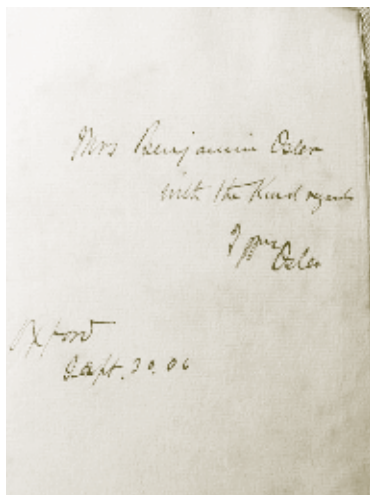 Mrs Benjamin Osler
with the Kind regards
of Wm
Osler
Oxford
Sept. 20. 06